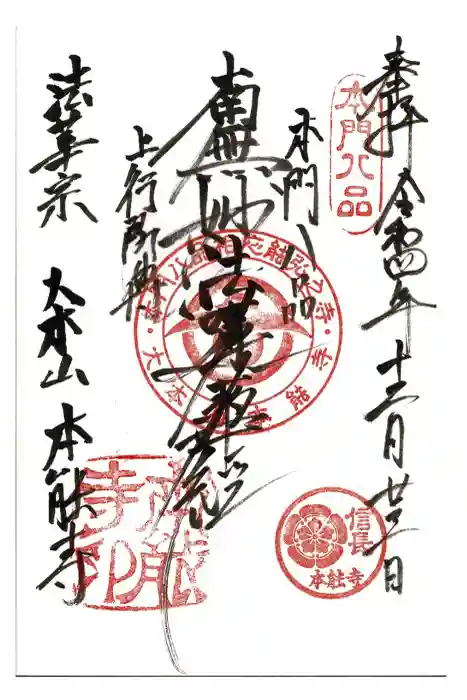 奉拝 令和四年十二月廿三日
本門八品
本門八品
南無妙法蓮華経
上行所傳
法華宗 大本山 本能寺
信長
本能寺
本能寺印